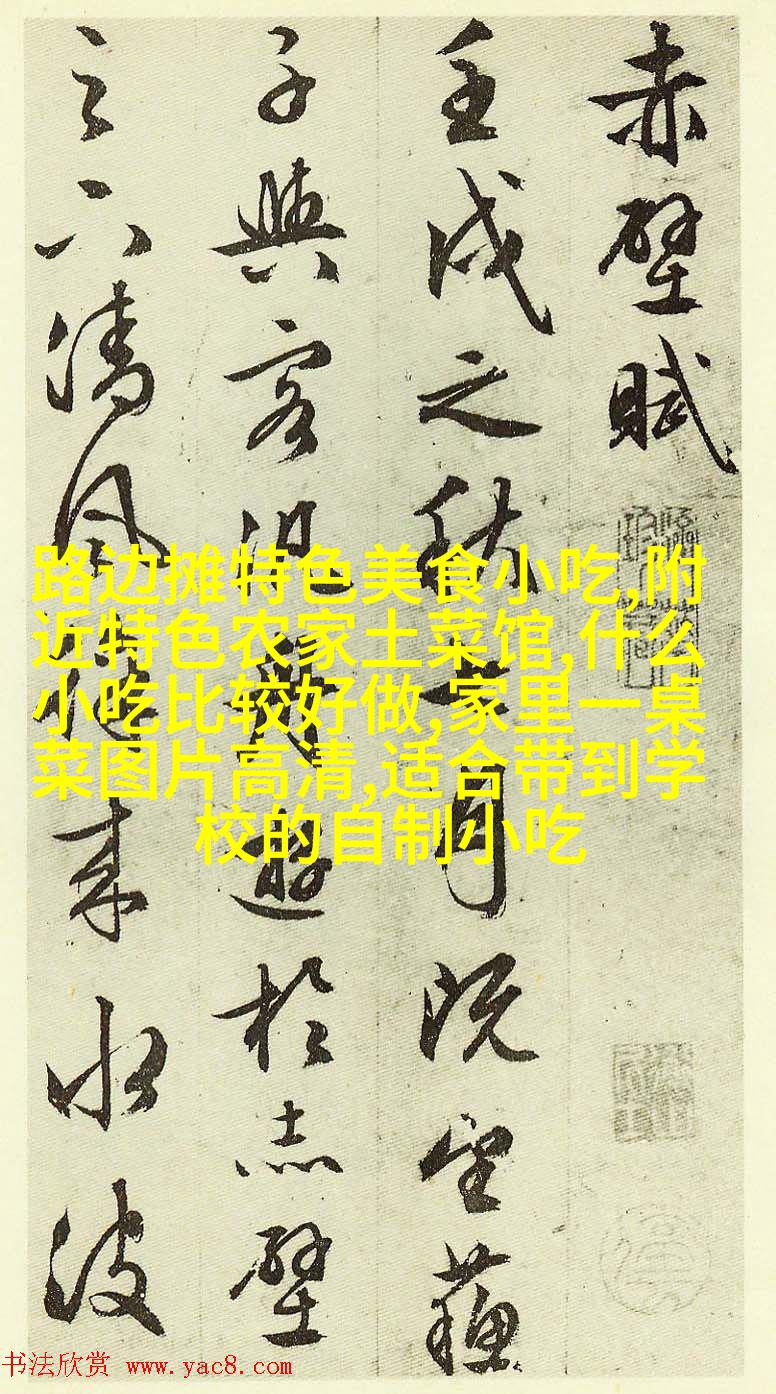 赤壁賦
壬戌之秋七月既望蘇
子與客泛舟遊於赤壁
之下清風徐來水波
路边摊特色美食小吃,附
近特色农家土菜馆,什么
小吃比较好做,家里一桌
菜图片高清,适合带到学
校的自制小吃
书法欣赏 www.yac8.com